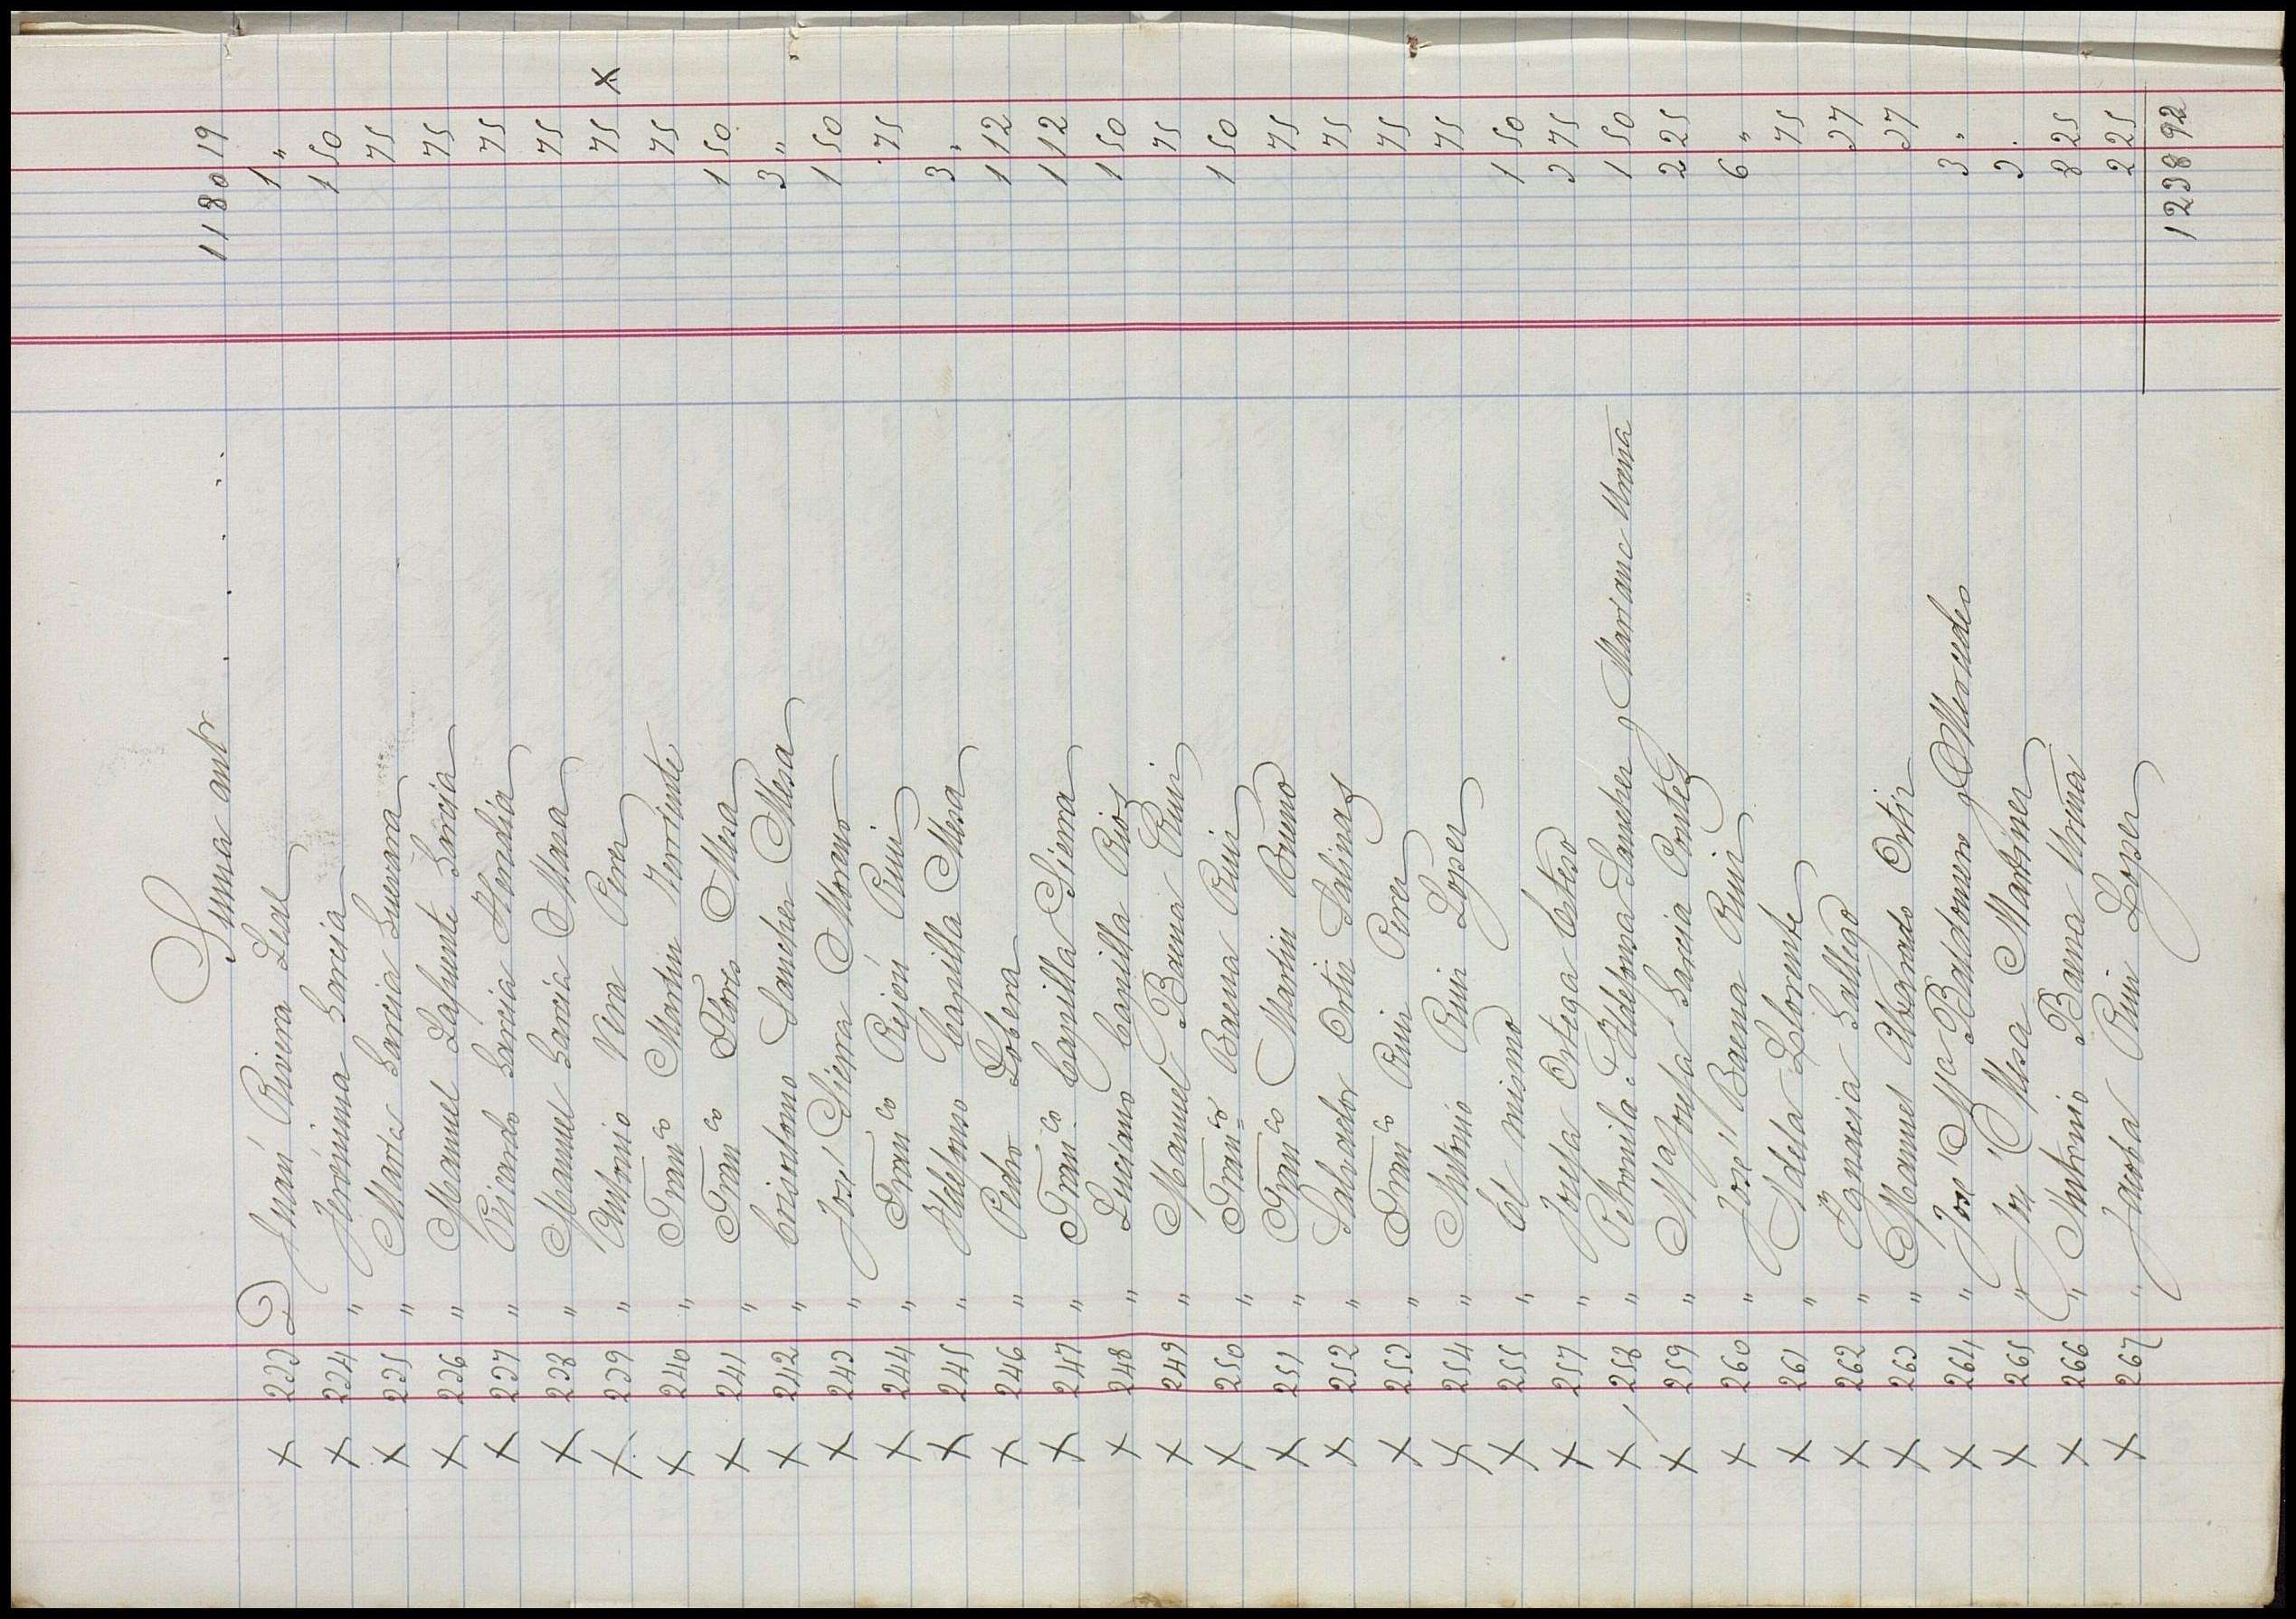 Suma antr . . . . . 1180 19
X 233 D Juan Rivera Leal 1 "
X 234 " Jerónima Garcia 1 50
X 235 " Marta Garcia Guevara 75
X 236 " Manuel Lafuente Garcia 75
X 237 " Ricardo Garcia Heredia 75
X 238 " Manuel Garcia Maza 75
X 239 " Antonio Vera Perez 75 X
X 240 " Franco Martin Terriente 75
X 241 " Franco Flores Mesa 1 50
X 242 " Crisostomo Sanchez Mesa 3 "
X 243 " José Sierra Moreno 1 50
X 244 " Franco Rejón Ruiz 75
X 245 " Ildefonso Capilla Mesa 3 "
X 246 " Pedro Lobera 1 12
X 247 " Franco Capilla Sierra 1 12
X 248 " Luciano Capilla Rios 1 50
X 249 " Manuel Baena Ruiz 75
X 250 " Franco Baena Ruiz 1 50
X 251 " Franco Martin Bueno 75
X 252 " Salvador Ortiz Salinas 75
X 253 " Franco Ruiz Perez 75
X 254 " Antonio Ruiz Lopez 75
X 255 " El mismo 1 50
X 257 " Josefa Ortega Cuteso 3 75
X 258 " Petronila Ildefonsa Sanchez y Mariano Ureña 1 50
X 259 " Ma Josefa Garcia Montes 2 25
X 260 " José Baena Ruiz 6 "
X 261 " Adela Llorente 75
X 262 " Ignacia Gallego 37
X 263 " Manuel Alvarado Ortiz 37
X 264 " José Ma Baldomero y Mercedes 3 "
X 265 " José Mesa Martinez 3 .
X 266 " Antonio Baena Ureña 8 25
X 267 " Jacoba Ruiz Lopez 2 25
1238 92